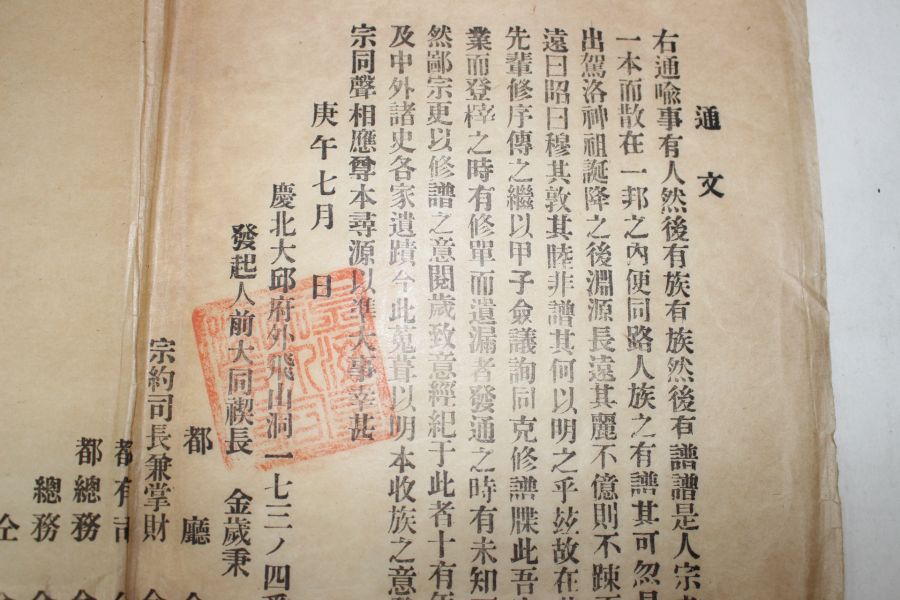 通文
右通喩事有人然後有族有族然後有譜譜是人宗
一本而散在一邦之內便同路人族之有譜其可忽是
出駕洛神祖誕降之後淵源長遠其麗不億則不踈
遠曰昭曰穆其敦其睦非譜其何以明之乎玆故在
先輩修序傳之繼以甲子僉議詢同克修譜牒此吾
業而登梓之時有修單而遺漏者發通之時有未知
然鄙宗更以修譜之意閱歲致意經紀于此者十有年
及中外諸史各家遺蹟今此蒐葺以明本收族之意
宗同聲相應尊本尋源以準大事幸甚
庚午七月 日
慶北大邱府外飛山洞一七三ノ四番
發起人前大同禊長 金歲秉
都廳
宗約司長兼掌財 金
都有司 金
都總務 金
總務 金
仝 金